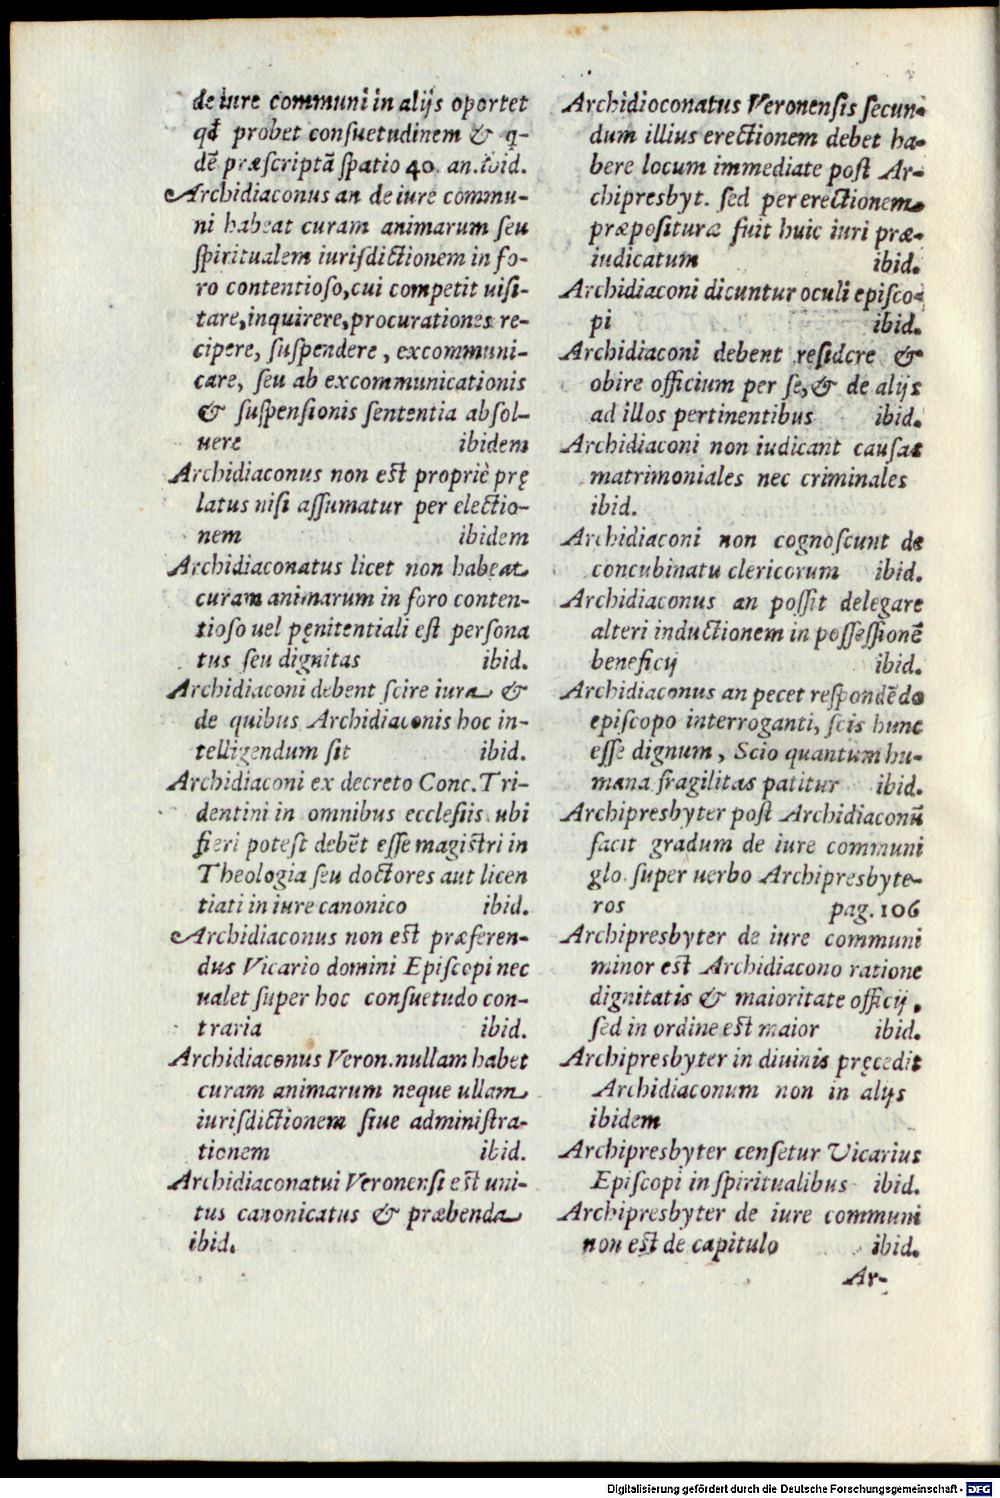 de iure communi in alijs oportet
qđ probet consuetudinem & q-
dē præscriptā spatio 40. an. ibid.
Archidiaconus an de iure commu-
ni habeat curam animarum seu
spiritualem iurisdictionem in fo-
ro contentioso, cui competit uisi-
tare, inquirere, procurationes re-
cipere, suspendere, excommuni-
care, seu ab excommunicationis
& suspensionis sententia absol-
uere ibidem
Archidiaconus non est propriè prę
latus nisi assumatur per electio-
nem ibidem
Archidiaconatus licet non habeat
curam animarum in foro conten-
tioso uel pęnitentiali est persona
tus seu dignitas ibid.
Archidiaconi debent scire iura &
de quibus Archidiaconis hoc in-
telligendum sit ibid.
Archidiaconi ex decreto Conc. Tri-
dentini in omnibus ecclesiis ubi
fieri potest debēt esse magistri in
Theologia seu doctores aut licen
tiati in iure canonico ibid.
Archidiaconus non est præferen-
dus Vicario domini Episcopi nec
ualet super hoc consuetudo con-
traria ibid.
Archidiaconus Veron. nullam habet
curam animarum neque ullam
iurisdictionem siue administra-
tionem ibid.
Archidiaconatui Veronensi est uni-
tus canonicatus & præbenda
ibid.
Archidioconatus Veronensis secun-
dum illius erectionem debet ha-
bere locum immediate post Ar-
chipresbyt. sed per erectionem
præposituræ fuit huic iuri præ-
iudicatum ibid.
Archidiaconi dicuntur oculi episco-
pi ibid.
Archidiaconi debent residere &
obire officium per se, & de alijs
ad illos pertinentibus ibid.
Archidiaconi non iudicant causas
matrimoniales nec criminales
ibid.
Archidiaconi non cognoscunt de
concubinatu clericorum ibid.
Archidiaconus an possit delegare
alteri inductionem in possessionē
beneficij ibid.
Archidiaconus an pecet respondēdo
episcopo interroganti, scis hunc
esse dignum, Scio quantum hu-
mana fragilitas patitur ibid.
Archipresbyter post Archidiaconū
facit gradum de iure communi
glo. super uerbo Archipresbyte-
ros pag. 106
Archipresbyter de iure communi
minor est Archidiacono ratione
dignitatis & maioritate officij,
sed in ordine est maior ibid.
Archipresbyter in diuinis pręcedit
Archidiaconum non in alijs
ibidem
Archipresbyter censetur Vicarius
Episcopi in spiritualibus ibid.
Archipresbyter de iure communi
non est de capitulo ibid.
Ar-
Digitalisierung gefördert durch die Deutsche Forschungsgemeinschaft - DFG